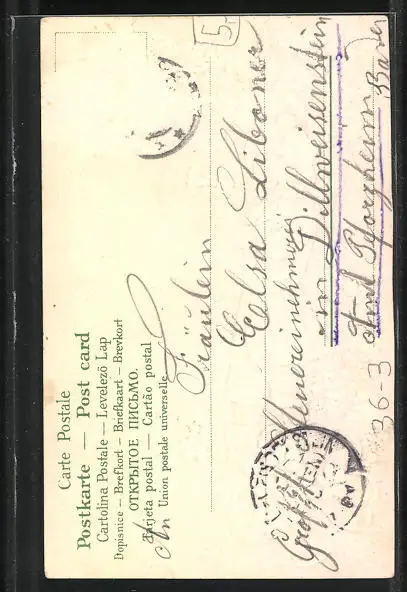 Carte Postale
Postkarte — Post card
Cartolina Postale — Levelező Lap
Dopisnice — Brefkort — Briefkaart — Brevkort
ОТКРЫТОЕ ПИСЬМО.
Tarjeta postal — Cartão postal
Union postale universelle
An
Fräulein
Elsa Liboner
Steuereinnehmerei
in Dillweisenstein
Amt Pforzheim
Baden
36-3
5.-